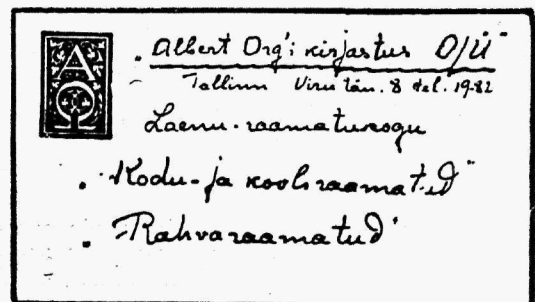 AO
„Albert Org'i kirjastus O/Ü“
Tallinn Viru tän. 8 tel. 19-82
Laenu-raamatukogu
„Kodu- ja kooliraamatud“
„Rahvaraamatud“